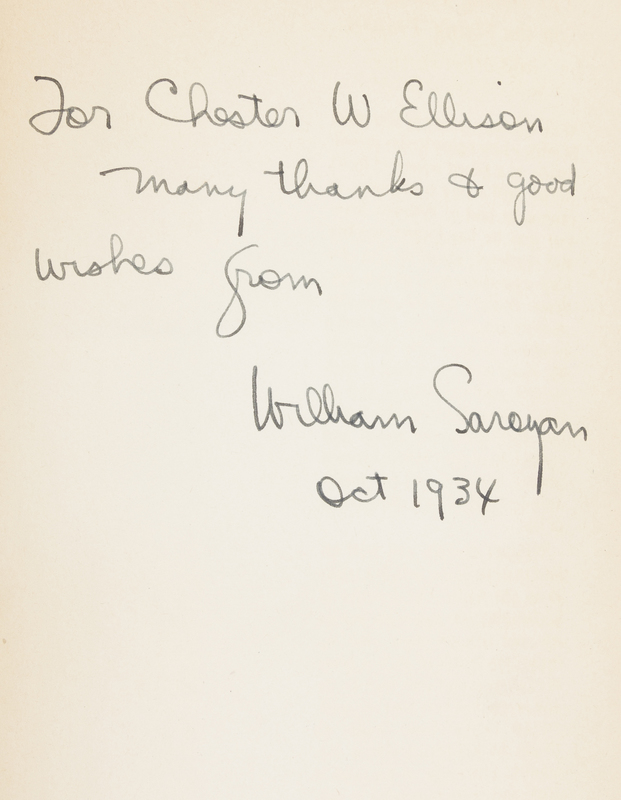 For Chester W Ellison
many thanks & good
wishes from
William Saroyan
Oct 1934